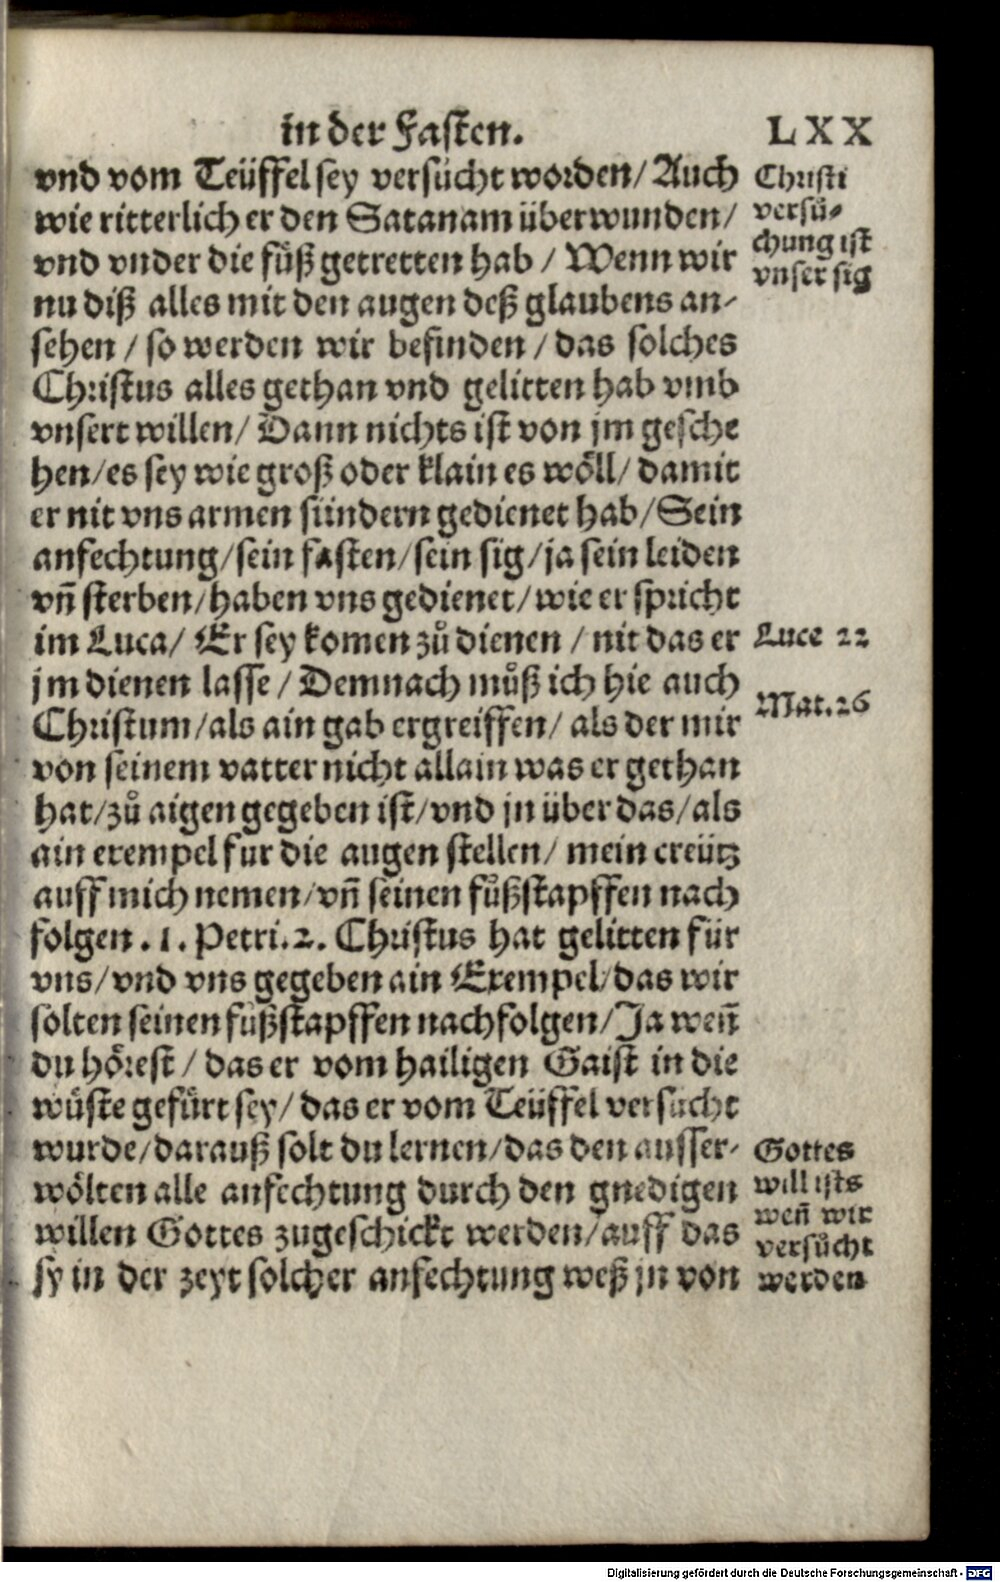 in der Fasten.
LXX
vnd vom Teüffel sey versůcht worden/ Auch
wie ritterlich er den Satanam überwunden/
vnd vnder die fůß getretten hab / Wenn wir
nu diß alles mit den augen deß glaubens an-
sehen / so werden wir befinden / das solches
Christus alles gethan vnd gelitten hab vmb
vnsert willen/ Dann nichts ist von jm gesche
hen/es sey wie groß oder klain es wöll/ damit
er nit vns armen sündern gedienet hab/Sein
anfechtung/sein fasten/sein sig/ja sein leiden
vñ sterben/haben vns gedienet/wie er spricht
im Luca/ Er sey komen zů dienen / nit das er
jm dienen lasse / Demnach můß ich hie auch
Christum/als ain gab ergreiffen/ als der mir
von seinem vatter nicht allain was er gethan
hat/zů aigen gegeben ist/vnd jn über das/als
ain exempel fur die augen stellen/ mein creütz
auff mich nemen/vñ seinen fůßstapffen nach
folgen . 1. Petri.2. Christus hat gelitten für
vns/vnd vns gegeben ain Exempel/das wir
solten seinen fůßstapffen nachfolgen/Ja weñ
du hörest / das er vom hailigen Gaist in die
wüste gefürt sey/ das er vom Teüffel versucht
wurde/darauß solt du lernen/das den ausser-
wölten alle anfechtung durch den gnedigen
willen Gottes zugeschickt werden/auff das
sy in der zeyt solcher anfechtung weß jn von
Christi
versů-
chung ist
vnser sig
Luce 22
Mat.26
Gottes
will ists
weñ wir
versůcht
werden
Digitalisierung gefördert durch die Deutsche Forschungsgemeinschaft - DFG